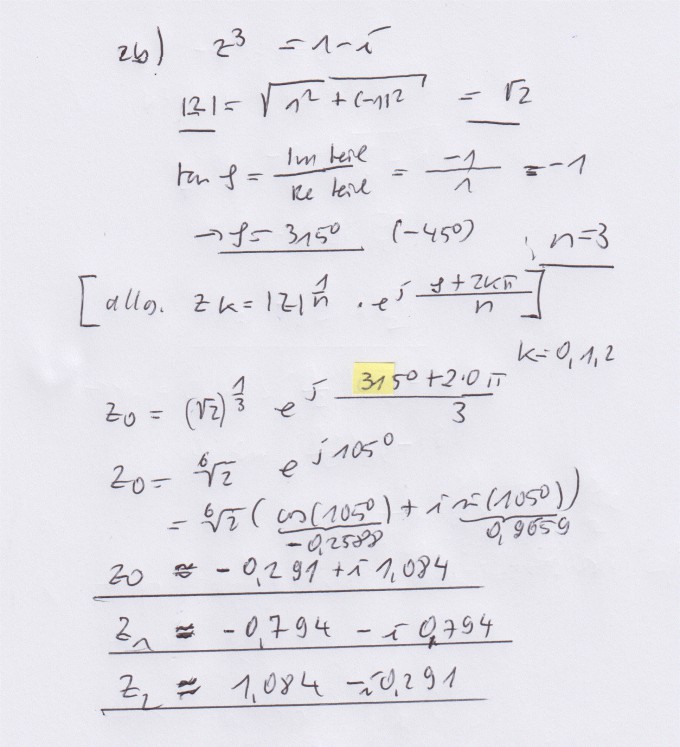 2b) z³ = 1-i
|z| = √(1² + (-1)²) = √2
tan φ = Im teil / Re teil = -1/1 = -1
→ φ = 315° (-45°) ; n=3
[allg. zk = |z|^(1/n) · e^(j (φ+2kπ)/n)]
k=0,1,2
z0 = (√2)^(1/3) e^(j (315°+2·0π)/3)
z0 = ⁶√2 e^(j105°)
= ⁶√2 (cos(105°) + i sin(105°))
-0,2588 0,9659
z0 ≈ -0,291 + i 1,084
z1 ≈ -0,794 - i 0,794
z2 ≈ 1,084 - i 0,291